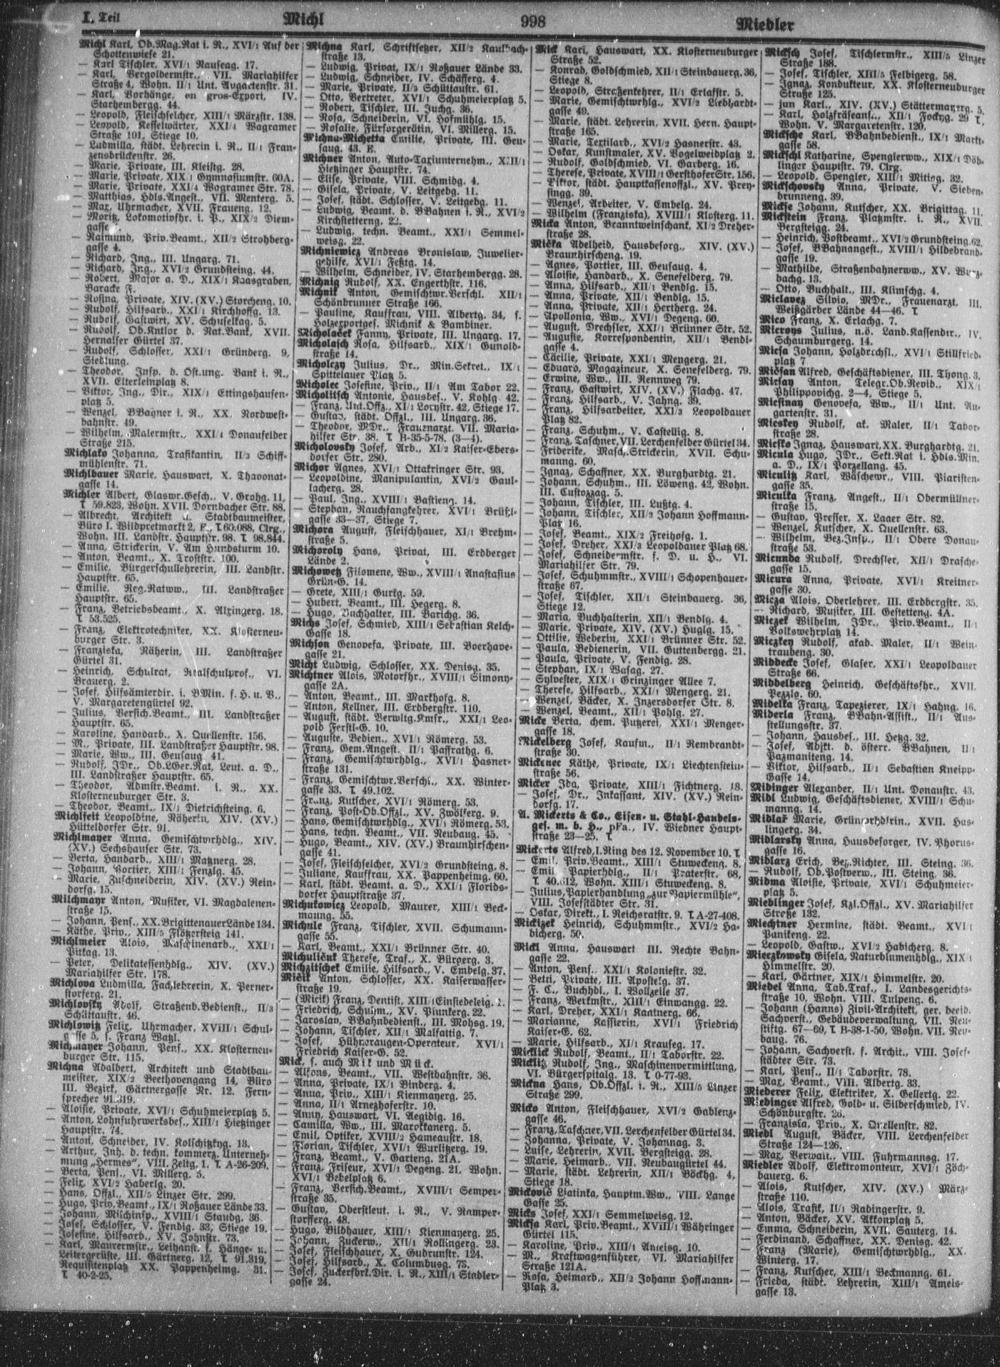 I. Teil
Michl
998
Miedler
Michl Karl, Ob.Mag.Rat i. R., XVI/1 Auf der
Schottenwiese 21.
— Karl Tischler, XVI/1 Nauseag. 17.
— Karl, Vergoldermstr., VII. Mariahilfer
Straße 4, Wohn. II/1 Unt. Augartenstr. 31.
— Karl, Vorhänge, en gros-Export, IV.
Starhembergg. 44.
— Leopold, Fleischselcher, XIII/1 Märzstr. 138.
— Leopold, Kesselwärter, XXI/1 Wagramer
Straße 101, Stiege 10.
— Ludmilla, städt. Lehrerin i. R., II/1 Fran-
zensbrückenstr. 26.
— Marie, Private, III. Kleistg. 28.
— Marie, Private, XIX/1 Gymnasiumstr. 60A.
— Marie, Private, XXI/4 Wagramer Str. 78.
— Matthias, Hdls.Angest., VII. Mentergg. 5.
— Max, Uhrmacher, XVI/2 Fraueng. 12.
— Moritz, Lokomotivfhr. i. P., XIX/2 Diem-
gasse
— Raimund, Priv.Beamt., XII/2 Strohberg-
gasse 4.
— Richard, Ing., III. Ungarg. 71.
— Richard, Ing., XVI/2 Grundsteing. 44.
— Robert, Major a. D., XIX/1 Kaasgraben,
Baracke F.
— Rosina, Private, XIV. (XV.) Storcheng. 10.
— Rudolf, Hilfsarb., XXI/1 Kirchhoffg. 13.
— Rudolf, Gastwirt, XV. Schuselkag. 5.
— Rudolf, Ob.Kntlor d. Nat.Bank, XVII.
Hernalser Gürtel 37.
— Rudolf, Schlosser, XXI/1 Grünberg. 9,
Siedlung.
— Theodor, Insp. d. Öst.ung. Bank i. R.,
XVII. Elterleinplatz 8.
— Viktor, Ing., Dir., XIX/1 Ettingshausen-
platz 5.
— Wenzel, BBahner i. R., XX. Nordwest-
bahnstr. 49.
— Wilhelm, Malermstr., XXI/1 Donaufelder
Straße 215.
Michlako Johanna, Trafikantin, II/2 Schiff-
mühlenstr. 71.
Michlbauer Marie, Hauswart, X. Thavonat-
gasse 14.
Michler Albert, Glaswr.Gesch., V. Grohg. 11,
T 59.823, Wohn. XVII. Dornbacher Str. 88.
— Albrecht, Architekt u. Stadtbaumeister,
Büro I. Wildpretmarkt 2, T 65.088, Clrg.,
Wohn. III. Landstr. Hauptstr. 98. T 98.844.
— Anna, Strickerin, V. Am Hundsturm 10.
— Anton, Beamt., X. Troststr. 100.
— Emilie, Bürgerschullehrerin, III. Landstr.
Hauptstr. 65.
— Emilie, Reg.Ratww., III. Landstraßer
Hauptstr. 65.
— Franz, Betriebsbeamt., X. Alxingerg. 18.
T 53.525.
— Franz, Elektrotechniker, XX. Klosterneu-
burger Str. 3.
— Franziska, Näherin, III. Landstraßer
Gürtel 31.
— Heinrich, Schulrat, Realschulprof., VI.
Brauerg. 2.
— Josef, Hilfsämterdir. i. BMin. f. H. u. V.,
V. Margaretengürtel 92.
— Julius, Versich.Beamt., III. Landstraßer
Hauptstr. 65.
— Karoline, Handarb., X. Quellenstr. 156.
— M., Private, III. Landstraßer Hauptstr. 98.
— Marie, Ww., III. Geusaug. 41.
— Rudolf, JDr., Ob.LGer.Rat, Leut. a. D.,
III. Landstraßer Hauptstr. 65.
— Theodor, Admstr.Beamt. i. R., XX.
Klosterneuburger Str. 3.
— Theodor, Beamt., IX/1 Dietrichsteing. 6.
Michlfeit Leopoldine, Näherin, XIV. (XV.)
Hütteldorfer Str. 91.
Michlmayer Anna, Gemischtwrhdlg., XIV.
(XV.) Sechshauser Str. 73.
— Berta, Handarb., XIII/1 Matznerg. 28.
— Johann, Portier, XIII/1 Fenzlg. 45.
— Marie, Zuschneiderin, XIV. (XV.) Rein-
dorfg. 15.
Milchmayr Anton, Musiker, VI. Magdalenen-
straße 15.
— Johann, Pens., XX. Brigittenauer Lände 134.
— Käthe, Priv., XIII/5 Flötzersteig 141.
Michlmeier Alois, Maschinenarb., XXI/1
Pitkag. 13.
— Peter, Delikatessenhdlg., XIV. (XV.)
Mariahilfer Str. 178.
Michlova Ludmilla, Fachlehrerin, X. Perner-
storferg. 21.
Michlovsky Adolf, Straßenb.Bedienst., II/3
Schüttaustr. 46.
Michlowitz Felix, Uhrmacher, XVIII/1 Schul-
gasse 5, f. Franz Wahl.
Michmayer Johann, Pens., XX. Klosterneu-
burger Str. 115.
Michna Adalbert, Architekt und Stadtbau-
meister, XIX/2 Beethovengang 14, Büro
III. Bezirk, Gärtnergasse Nr. 12, Fern-
sprecher 91.319.
— Aloisie, Private, XVI/1 Schuhmeierplatz 5.
— Anton, Lohnfuhrwerksbes., XIII/1 Hietzinger
Hauptstr. 74.
— Anton, Schneider, IV. Kolschitzkyg. 13.
— Arthur, Inh. d. techn. kommerz. Unterneh-
mung „Hermes“, VIII. Zeltg. 1, T A-26-209.
— Berta, Pens., VI. Millerg. 5.
— Felix, XVI/2 Haberlg. 20.
— Hans, Offzl., XII/5 Linzer Str. 299.
— Hugo, Priv.Beamt., IX/1 Roßauer Lände 33.
— Johann, Mschinsp., XVII/1 Staudg. 36.
— Josef, Schlosser, V. Fendig. 33, Stiege 19.
— Josefine, Hilfsarb., XV. Johnstr. 73.
— Karl, Maurermstr., Leihanst. f. Hänge- u.
Leitergerüste, III. Gärtnerg. 12, T 91.319,
Requisitenplatz XX. Pappenheimg. 31.
T 40-2-25.
Michna Karl, Schriftsetzer, XII/2 Kaulbach-
straße 13.
— Ludwig, Privat, IX/1 Roßauer Lände 33.
— Ludwig, Schneider, IV. Schäfferg. 4.
— Marie, Private, II/2 Schüttaustr. 61.
— Otto, Vertreter, XVI/1 Schuhmeierplatz 5.
— Robert, Tischler, III. Juchg. 36.
— Rosa, Schneiderin, VI. Hofmühlg. 15.
— Rosalie, Fürsorgerätin, VI. Millerg. 15.
Michna-Michetta Emilie, Private, III. Geu-
saug. 43, E.
Michner Anton, Auto-Taxiunternehm., XIII/1
Hietzinger Hauptstr. 74.
— Elise, Private, VIII. Schmidg. 4.
— Gisela, Private, V. Leitgebg. 11.
— Josef, städt. Schlosser, V. Leitgebg. 11.
— Ludwig, Beamt. d. BBahnen i. R., XVI/2
Kirchstetterng. 22.
— Ludwig, techn. Beamt., XXI/1 Semmel-
weisg. 22.
Michniewicz Andreas Bronislaw, Juwelier-
gehilfe, XVI/1 Feßtg. 14.
— Wilhelm, Schneider, IV. Starhembergg. 28.
Michnig Rudolf, XX. Engerthstr. 116.
Michnik Anton, Gemischtwr.Verschl., XII/1
Schönbrunner Straße 166.
— Pauline, Kauffrau, VIII. Albertg. 34, f.
Holzexportges. Michnik & Kambiner.
Micholaček Fanny, Private, III. Ungarg. 17.
Micholasch Rosa, Hilfsarb., XIX/1 Gunold-
straße 14.
Micholczy Julius, Dr., Min.Sekret., IX/1
Spittelauer Platz 5.
Micholec Josefine, Priv., II/1 Am Tabor 22.
Micholitsch Antonie, Hausbes., V. Kohlg. 42.
— Franz, Unt.Offz., XI/1 Lorystr. 42, Stiege 17.
— Gustav, städt. Offzl., III. Ungarg. 36.
— Theodor, MDr., Frauenarzt, VII. Maria-
hilfer Str. 38. T B-35-5-78. (3—4).
Micholovsky Josef, Arb., XI/2 Kaiser-Ebers-
dorfer Str. 280.
Michor Agnes, XVI/1 Ottakringer Str. 93.
— Leopoldine, Manipulantin, XVI/2 Gaul-
lacherg. 28.
— Paul, Ing., XVIII/1 Bastieng. 14.
— Stephan, Rauchfangkehrer, XVI/1 Brüßl-
gasse 33—37, Stiege 7.
Michora August, Fleischhauer, XI/1 Brehm-
straße 5.
Michoroly Hans, Privat, III. Erdberger
Lände 2.
Michowetz Filomene, Ww., XVIII/1 Anastasius
Grün-G. 14.
— Grete, XIII/1 Gurkg. 59.
— Hubert, Beamt., III. Hegerg. 8.
— Hugo, Buchhalter, III. Barichg. 36.
Michs Josef, Schmied, XIII/1 Sebastian Kelch-
Gasse 18.
Michson Genovefa, Private, III. Boerhave-
gasse 21.
Micht Ludwig, Schlosser, XX. Denisg. 35.
Michtner Alois, Motorfhr., XVIII/1 Simony-
gasse 2A.
— Anton, Beamt., III. Markhofg. 8.
— Anton, Kellner, III. Erdbergstr. 110.
— August, städt. Verwltg.Kmsr., XXI/1 Leo-
pold Ferstl-G. 10.
— Auguste, Bedien., XVI/1 Römerg. 53.
— Franz, Gem.Angest., II/1 Paffrathg. 6.
— Franz, Gemischtwrhdlg., XVI/1 Hasner-
straße 131.
— Franz, Gemischtwr.Verschl., XX. Winter-
gasse 33. T 49.102.
— Franz, Kutscher, XVI/1 Römerg. 53.
— Franz, Post-Ob.Offzl., XV. Zwölferg. 9.
— Hans, Gemischtwrhdlg., XVI/1 Römerg. 53.
— Hans, techn. Beamt., VII. Neubaug. 45.
— Hugo, Beamt., XIV. (XV.) Braunhirschen-
gasse 41.
— Josef, Fleischselcher, XVI/2 Grundsteing. 8.
— Juliane, Kauffrau, XX. Pappenheimg. 60.
— Karl, städt. Beamt. a. D., XXI/1 Florids-
dorfer Hauptstraße 37.
Michukowicz Leopold, Maurer, XIII/1 Beck-
manng. 55.
Michule Franz, Tischler, XVII. Schumann-
gasse 55.
— Karl, Beamt., XXI/1 Brünner Str. 40.
Michulischt Therese, Traf., X. Bürgerg. 3.
Michzitschek Emilie, Hilfsarb., V. Embelg. 37.
Mičik Anton, Schlosser, XX. Kaiserwasser-
straße 19.
— (Micik) Franz, Dentist, XIII/1 Einsiedeleig. 1.
— Friedrich, Schuhm., XV. Plunkerg. 22.
— Jaroslav, BBahnbedienst., III. Mohsg. 19.
— Johann, Tischler, XII/1 Malfattig. 7.
— Josef, Hühneraugen-Operateur, XVI/1
Friedrich Kaiser-G. 52.
Mick, s. auch Mik und Mück.
— Alfons, Beamt., VII. Westbahnstr. 36.
— Anna, Private, IX/1 Binderg. 4.
— Anna, Priv., XIII/1 Kienmayerg. 25.
— Anna, II/1 Arnezhoferstr. 10.
— Anny, Hauswart, VI. Aegidig. 16.
— Camilla, Ww., III. Marokkanerg. 5.
— Emil, Optiker, XVIII/2 Hameaustr. 18.
— Florian, Tischler, XVI/1 Wurlitzerg. 19.
— Franz, Beamt., V. Garteng. 21A.
— Franz, Friseur, XVI/1 Degeng. 21, Wohn.
XVI/1 Bebelplatz 6.
— Franz, Versich.Beamt., XVIII/1 Semper-
straße 35.
— Gustav, Oberstleut. i. R., V. Ramper-
storfferg. 48.
— Hugo, Bildhauer, XIII/1 Kienmayerg. 25.
— Johann, Zuckerw., XII/1 Rollingerg. 23.
— Josef, Fleischhauer, X. Gudrunstr. 124.
— Josef, Hilfsarb., X. Columbusg. 73.
— Josef, Zuckerfbr.Dir. i. R., XIII/1 Stadler-
gasse 24.
Mick Karl, Hauswart, XX. Klosterneuburger
Straße 52.
— Konrad, Goldschmied, XII/1 Steinbauerg. 36,
Stiege 8.
— Leopold, Straßenkehrer, II/1 Erlafstr. 5.
— Marie, Gemischtwrhdlg., XVI/2 Liebhardt-
gasse 49.
— Marie, städt. Lehrerin, XVII. Hern. Haupt-
straße 165.
— Marie, Textilarb., XVI/2 Hasnerstr. 43.
— Oskar, Kunstmaler, XV. Vogelweidplatz 2.
— Rudolf, Goldschmied, VI. Garberg. 16.
— Therese, Private, XVIII/1 Gersthofer Str. 156.
— Viktor, städt. Hauptkassenoffzl., XV. Prey-
singg. 39.
— Wenzel, Arbeiter, V. Embelg. 24.
— Wilhelm (Franziska), XVIII/1 Klosterg. 11.
Micka Anton, Branntweinschank, XI/2 Dreher-
straße 28.
Mička Adelheid, Hausbesorg., XIV. (XV.)
Braunhirscheng. 19.
— Agnes, Portier, III. Geusaug. 4.
— Aloisie, Handarb., X. Senefelderg. 79.
— Anna, Hilfsarb., XII/1 Bendlg. 15.
— Anna, Private, XII/1 Bendlg. 15.
— Anna, Private, XII/1 Hertberg. 24.
— Apollonia, Ww., XVI/1 Degeng. 60.
— August, Drechsler, XXI/1 Brünner Str. 52.
— Auguste, Korrespondentin, XII/1 Bendl-
gasse 4.
— Cäcilie, Private, XXI/1 Mengerg. 21.
— Eduard, Magazineur, X. Senefelderg. 79.
— Erwine, Ww., III. Rennweg 79.
— Franz, Gastwirt, XIV. (XV.) Flachg. 47.
— Franz, Hilfsarb., V. Jahng. 39.
— Franz, Hilfsarbeiter, XXI/2 Leopoldauer
Platz 82.
— Franz, Schuhm., V. Castellig. 8.
— Franz, Taschner, VII. Lerchenfelder Gürtel 34.
— Friderike, Masch.Strickerin, XVII. Schu-
manng. 60.
— Ignaz, Schaffner, XX. Burghardtg. 21.
— Johann, Schuhm., III. Löweng. 42, Wohn.
III. Custozzag. 5.
— Johann, Tischler, III. Lustg. 4.
— Johann, Tischler, XII/2 Johann Hoffmann-
Platz 16.
— Josef, Beamt., XIX/2 Freihofg. 1.
— Josef, Dreher, XXI/2 Leopoldauer Platz 68.
— Josef, Schneidermstr. f. D. u. H., VI.
Mariahilfer Str. 79.
— Josef, Schuhmmstr., XVIII/1 Schopenhauer-
straße 67.
— Josef, Tischler, XII/1 Steinbauerg. 36,
Stiege 12.
— Maria, Buchhalterin, XII/1 Bendlg. 4.
— Marie, Private, XIV. (XV.) Huglg. 15.
— Ottilie, Weberin, XXI/1 Brünner Str. 52.
— Paula, Bedienerin, VII. Guttenbergg. 21.
— Paula, Private, V. Fendig. 28.
— Stephan, IX/1 Wasag. 27.
— Sylvester, XIX/1 Grinzinger Allee 7.
— Therese, Hilfsarb., XXI/1 Mengerg. 21.
— Wenzel, Bäcker, X. Inzersdorfer Str. 8.
— Wenzel, Beamt., XII/1 Pohlg. 27.
Micke Berta, chem. Putzerei, XXI/1 Menger-
gasse 18.
Mickelberg Josef, Kaufm., II/1 Rembrandt-
straße 30.
Mickenec Käthe, Private, IX/1 Liechtenstein-
straße 56.
Micker Ida, Private, XIII/1 Fichtnerg. 18.
— Josef, Dr., Inkassant, XIV. (XV.) Rein-
dorfg. 17.
A. Mickerts & Co., Eisen- u. Stahl-Handels-
ges. m. b. H., pFa., IV. Wiedner Haupt-
straße 23—25. T
Mickerts Alfred, I. Ring des 12. November 10. T
— Emil, Priv.Beamt., XIII/1 Stuweckeng. 8.
— Emil, Papierhdlg., II/1 Praterstr. 68,
T 40.612, Wohn. XIII/1 Stuweckeng. 8.
— Julius, Papierhandlung „zur Papiermühle“,
VIII. Josefstädter Str. 31.
— Oskar, Direkt., I. Reichsratstr. 9. T A-27-408.
Mickizek Heinrich, Schuhmmstr., XVI/2 Ha-
bicherg. 50.
Mickl Anna, Hauswart, III. Rechte Bahn-
gasse 22.
— Anton, Pens., XXI/1 Koloniestr. 32.
— Betti, Private, III. Apostelg. 37.
— F. C., Buchbdl., I. Wollzeile 37.
— Franz, Werkmstr., XIII/1 Einwangg. 22.
— Karl, Dreher, XXI/1 Kaatnerg. 66.
— Marianne, Kassierin, XVI/1 Friedrich
Kaiser-G. 62.
— Marie, Hilfsarb., XI/1 Krauseg. 17.
Micklick Rudolf, Beamt., II/1 Taborstr. 22.
Micklitz Rudolf, Ing., Maschinenvermittlung,
VI. Bürgerspitalg. 13. T 0-77-93.
Mickna Hans, Ob.Offzl. i. R., XIII/5 Linzer
Straße 299.
Micko Anton, Fleischhauer, XVI/2 Gablenz-
gasse 46.
— Franz, Taschner, VII. Lerchenfelder Gürtel 34.
— Johanna, Private, V. Johannag. 3.
— Luise, Lehrerin, XVII. Bergsteigg. 28.
— Marie, Heimarb., VII. Neubaugürtel 44.
— Marie, städt. Lehrerin, XII/1 Böckhg. 4,
Stiege 18.
Micković Liatinka, Hauptm.Ww., VIII. Lange
Gasse 25.
Micks Josef, XXI/1 Semmelweisg. 12.
Micksa Karl, Priv.Beamt., XVIII/1 Währinger
Gürtel 115.
— Karoline, Priv., XIII/1 Aneisg. 10.
— M., Kraftwagenführer, VI. Mariahilfer
Straße 121A.
— Rosa, Heimarb., XII/2 Johann Hoffmann-
Platz 3.
Micksch Josef, Tischlermstr., XIII/5 Linzer
Straße 188.
— Josef, Tischler, XIII/5 Felbigerg. 58.
— Ignaz, Kondukteur, XX. Klosterneuburger
Straße 125.
— jun. Karl., XIV. (XV.) Stättermayerg. 5.
— Karl, Holzfräseanst., XII/1 Fockyg. 29 T,
Wohn. V. Margaretenstr. 120.
Micksche Karl, BBahnbedienst., IX/1 Markt-
gasse 58.
Mickschl Katharine, Spenglerww., XIX/1 Döb-
linger Hauptstr. 79. Clrg.
— Leopold, Spengler, XIII/1 Mitisg. 32.
Mickschovsky Anna, Private, V. Sieben-
brunneng. 39.
Micksie Johann, Kutscher, XX. Brigittag. 11.
Mickstein Franz, Platzmstr. i. R., XVII.
Bergsteigg. 24.
— Heinrich, Postbeamt., XVI/2 Grundsteing. 62.
— Josef, BBahnangest., XVIII/1 Hildebrand-
gasse 19.
— Mathilde, Straßenbahnerww., XV. Wurz-
bachg. 13.
— Otto, Buchhalt., III. Klimschg. 4.
Miclavez Silvio, MDr., Frauenarzt, III.
Weißgärber Lände 44—46. T
Mico Franz, X. Erlachg. 7.
Micreys Julius, n.ö. Land.Kassendir., IV.
Schaumburgerg. 14.
Micsa Johann, Holzdrechsl., XVI/1 Stillfried-
platz 7.
Mičšan Alfred, Geschäftsdiener, III. Thong. 3.
Micsay Anton, Telegr.Ob.Revid., XIX/1
Philippovichg. 2—4, Stiege 5.
Micsinay Genovefa, Ww., II/1 Unt. Au-
gartenstr. 31.
Micskey Rudolf, ak. Maler, II/1 Tabor-
straße 28.
Micske Ignaz, Hauswart, XX. Burghardtg. 21.
Micula Hugo, JDr., Sekt.Rat i. Hdls.Min.
a. D., IX/1 Porzellang. 45.
Miculik Karl, Wäschewr., VIII. Piaristen-
gasse 35.
Miculka Franz, Angest., II/1 Obermüllner-
straße 15.
— Gustav, Presser, X. Laaer Str. 82.
— Wenzel, Kutscher, X. Quellenstr. 63.
— Wilhelm, Bez.Insp., II/1 Obere Donau-
straße 53.
Micunda Rudolf, Drechsler, XII/1 Drasche-
gasse 15.
Micura Anna, Private, XVI/1 Kreitner-
gasse 30.
Micza Alois, Oberlehrer, III. Erdbergstr. 35.
— Richard, Musiker, III. Gestetteng. 4A.
Miczek Wilhelm, JDr., Priv.Beamt., II/1
Volkswehrplatz 14.
Miczley Rudolf, akad. Maler, II/1 Wein-
traubeng. 30.
Middecke Josef, Glaser, XXI/1 Leopoldauer
Straße 66.
Middelberg Heinrich, Geschäftsfhr., XVII.
Pezzlg. 60.
Midelka Franz, Tapezierer, IX/1 Hahng. 16.
Miderla Franz, BBahn-Assist., II/1 Aus-
stellungsstr. 37.
— Johann, Hausbes., III. Hetzg. 32.
— Josef, Adjkt. d. österr. BBahnen, II/1
Pazmaniteng. 14.
— Viktor, Hilfsarb., II/1 Sebastian Kneipp-
Gasse 14.
Midinger Alexander, II/1 Unt. Donaustr. 43.
Midl Ludwig, Geschäftsdiener, XVIII/1 Schu-
manng. 14.
Midlař Marie, Grünwrhdlrin, XVII. Has-
lingerg. 34.
Midlarsky Anna, Hausbesorger, IV. Phorus-
gasse 16.
Midlarz Erich, Bez.Richter, III. Steing. 36.
— Rudolf, Ob.Postverw., III. Steing. 36.
Midma Aloisie, Private, XVI/1 Schuhmeier-
platz 5.
Mieblinger Josef, Kzl.Offzl., XV. Mariahilfer
Straße 132.
Miechtner Hermine, städt. Beamt., XVI/1
Panikeng. 22.
— Leopold, Gastw., XVI/2 Habicherg. 8.
Mieczkowsky Gisela, Naturblumenhdlg., XIX/1
Himmelstr. 20.
— Karl, Gärtner, XIX/1 Himmelstr. 20.
Miedel Anna, Tab.Traf., I. Landesgerichts-
straße 10, Wohn. VIII. Tulpeng. 6.
— Johann (Hanns) Zivil-Architekt, ger. beeid.
Sachverst., Gebäudeverwaltung, VII. Neu-
stiftg. 67—69, T B-38-1-50, Wohn. VII. Neu-
baug. 76.
— Johann, Sachverst. f. Archit., VIII. Josef-
städter Str. 73.
— Karl, Pens., II/1 Taborstr. 78.
— Max, Beamt., VIII. Albertg. 33.
Miederer Felix, Elektriker, X. Gellertg. 22.
Miedinger Alfred, Gold- u. Silberschmied, IV.
Schönburgstr. 26.
— Franziska, Priv., X. Quellenstr. 82.
Miedl August, Bäcker, VIII. Lerchenfelder
Straße 124—126.
— Max, Verwalt., VIII. Fuhrmannsg. 17.
Miedler Adolf, Elektromonteur, XVI/1 Zöch-
bauerg. 6.
— Alois, Kutscher, XIV. (XV.) März-
straße 110.
— Alois, Trafik, II/1 Rabingerstr. 9.
— Anton, Bäcker, XV. Akkonplatz 5.
— Emma, Schneiderin, XVII. Gauterg. 14.
— Ferdinand, Schaffner, XX. Denisg. 42.
— Franz (Marie), Gemischtwrhdlg., XX.
Winterg. 17.
— Franz, Kutscher, XIII/1 Beckmanng. 61.
— Frieda, städt. Lehrerin, XIII/1 Ameis-
gasse 13.